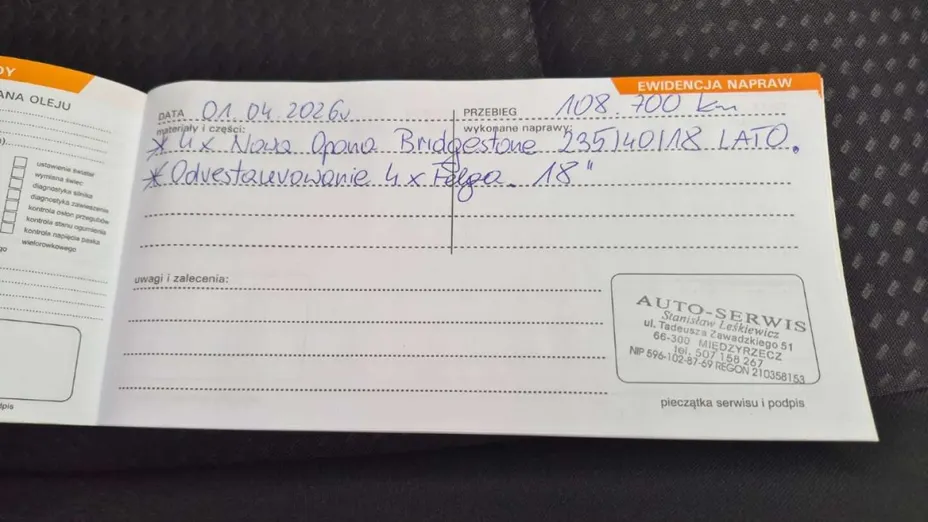 DY
ANA OLEJU
ustawienie świateł
wymiana świec
diagnostyka silnika
diagnostyka zawieszenia
kontrola osłon przegubów
kontrola stanu ogumienia
kontrola napięcia paska
wielorowkowego
go
dpis
EWIDENCJA NAPRAW
DATA 01.04.2026r PRZEBIEG 108.700 km
materiały i części: wykonane naprawy:
* 4x Nowa Opona Bridgestone 235/40/18 LATO.
* Odrestaurowanie 4x Felga. 18"
uwagi i zalecenia:
AUTO-SERWIS
Stanisław Leśkiewicz
ul. Tadeusza Zawadzkiego 51
66-300 MIĘDZYRZECZ
tel. 507 158 267
NIP 596-102-87-69 REGON 210358153
pieczątka serwisu i podpis